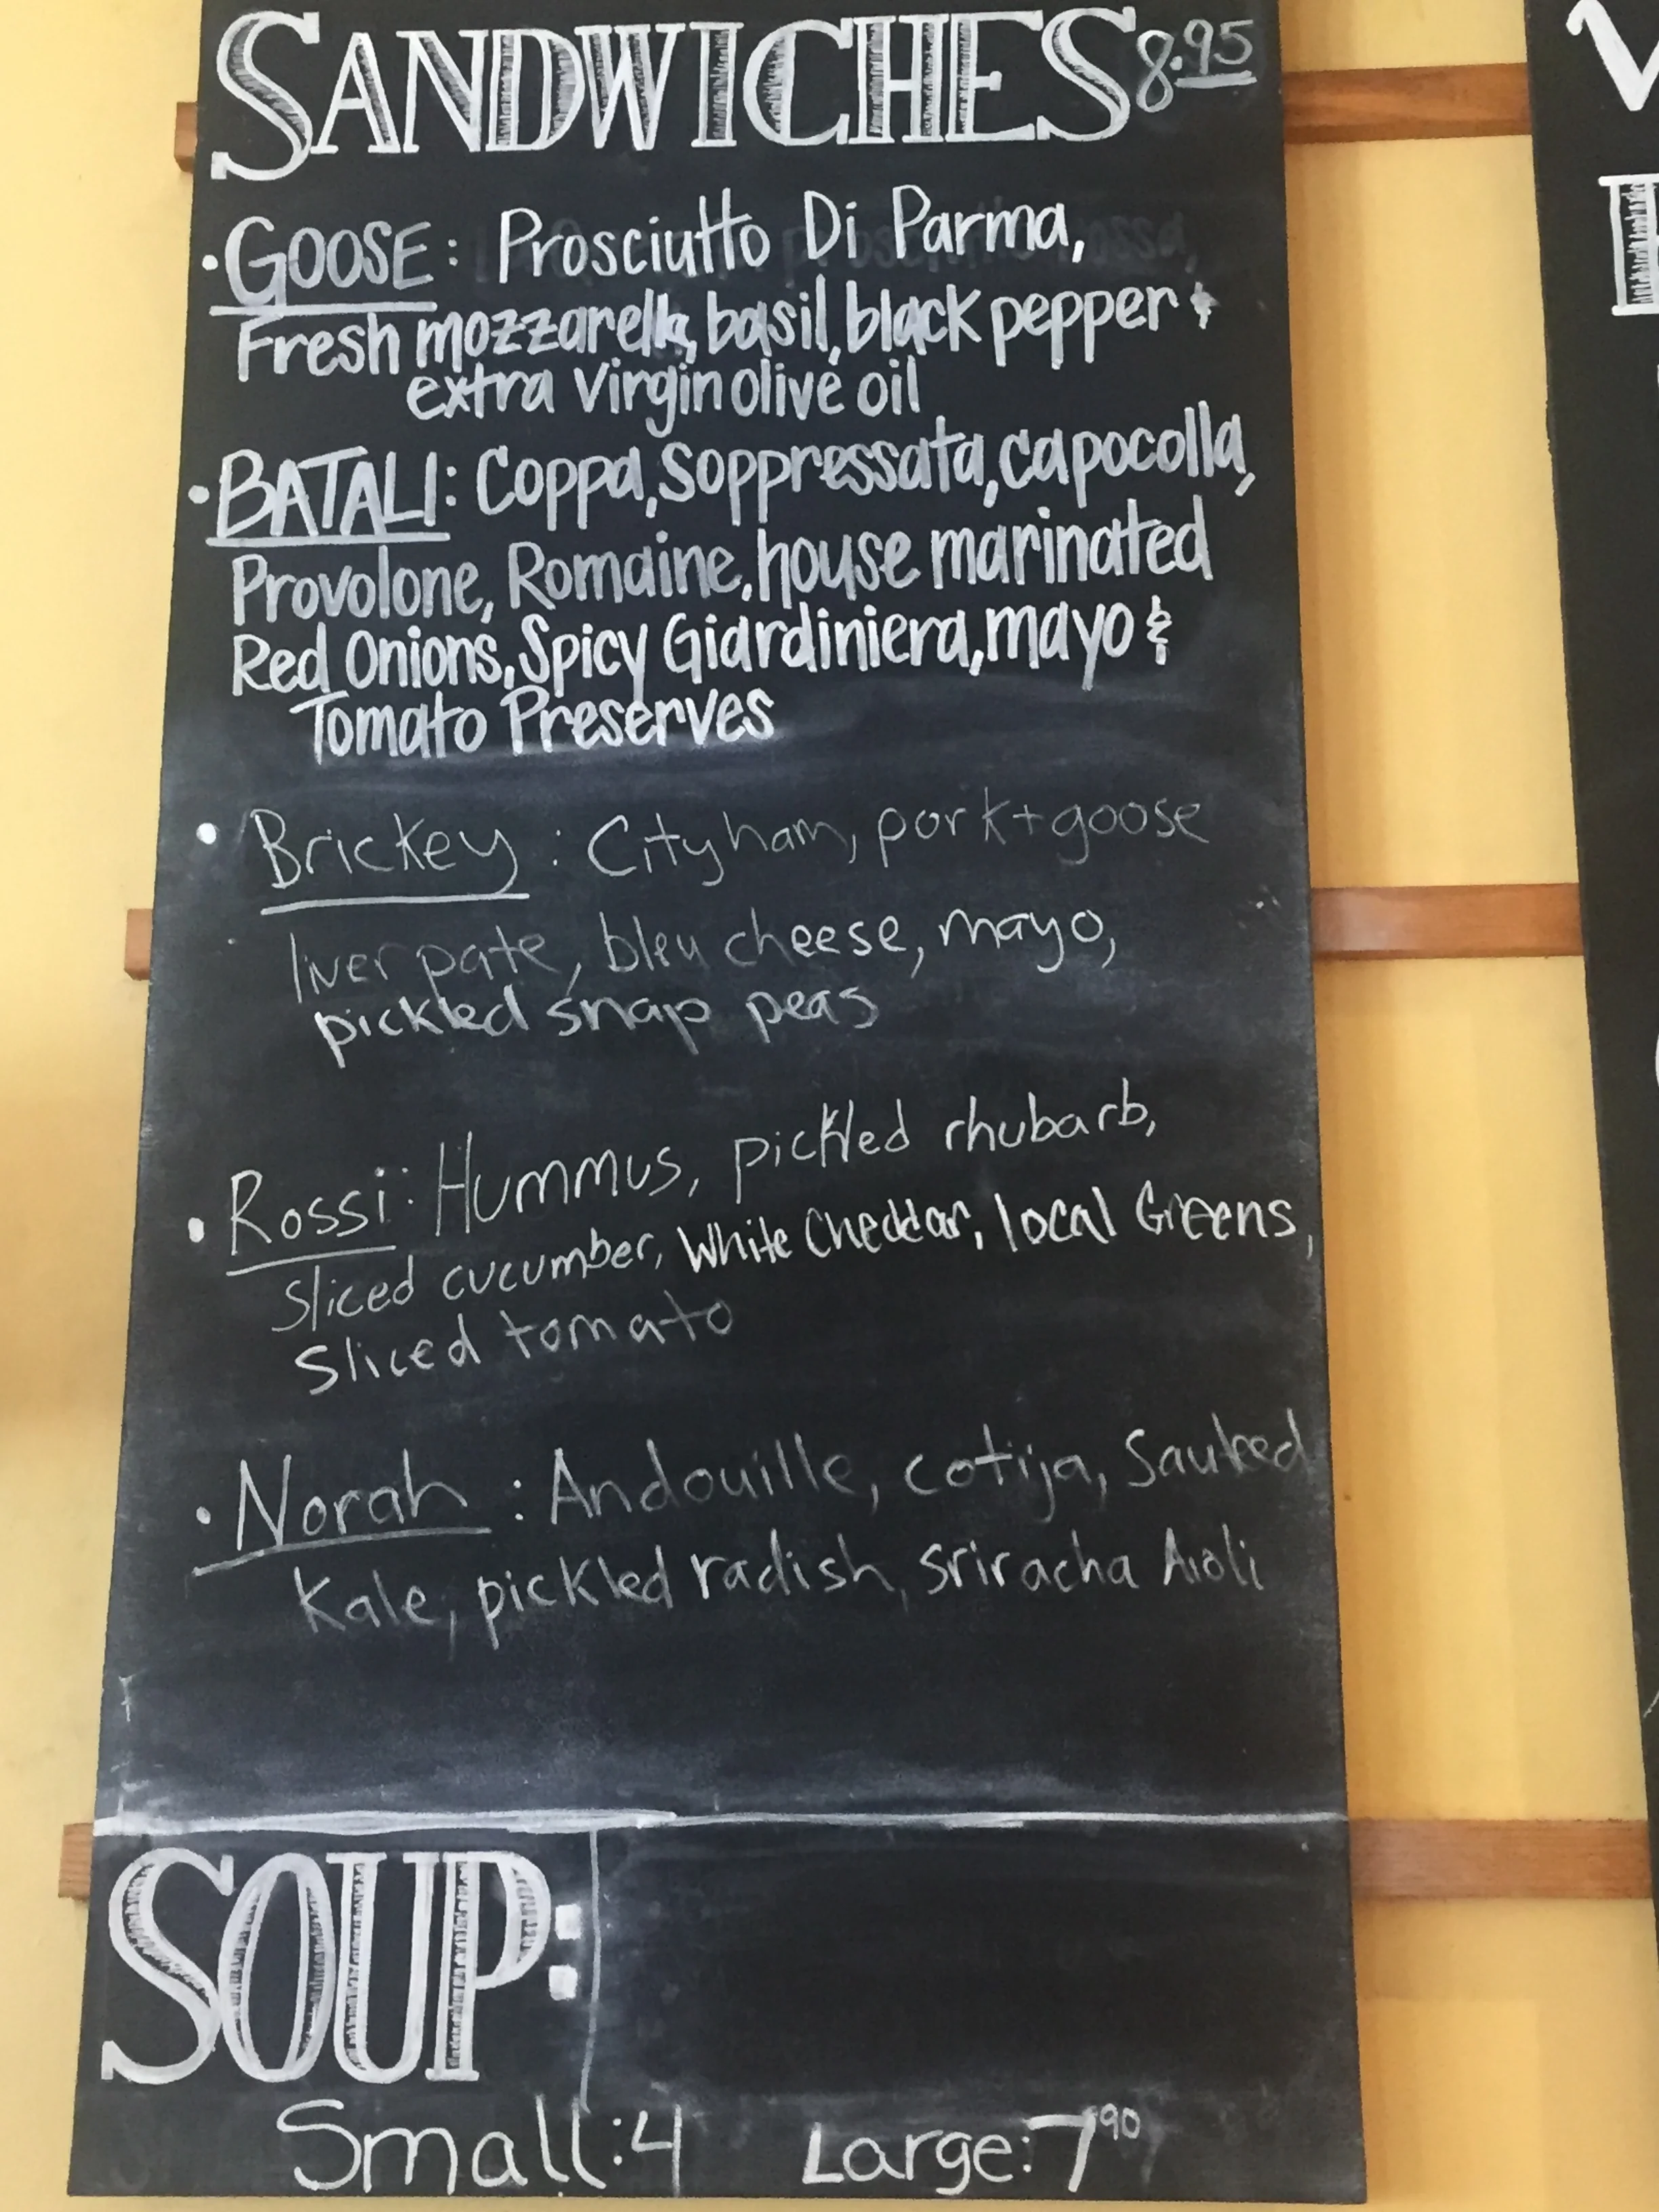 SANDWICHES 8.95
• GOOSE: Prosciutto Di Parma,
Fresh mozzarella, basil, black pepper &
extra virgin olive oil
• BATALI: Coppa, Soppressata, capocolla,
Provolone, Romaine, house marinated
Red Onions, Spicy Giardiniera, mayo &
Tomato Preserves
• Brickey: City ham, pork + goose
liver pate, bleu cheese, mayo,
pickled snap peas
• Rossi: Hummus, pickled rhubarb,
sliced cucumber, White Cheddar, local Greens,
Sliced tomato
• Norah: Andouille, cotija, Sauteed
Kale, pickled radish, sriracha Aioli
SOUP:
Small: 4 Large: 7 90